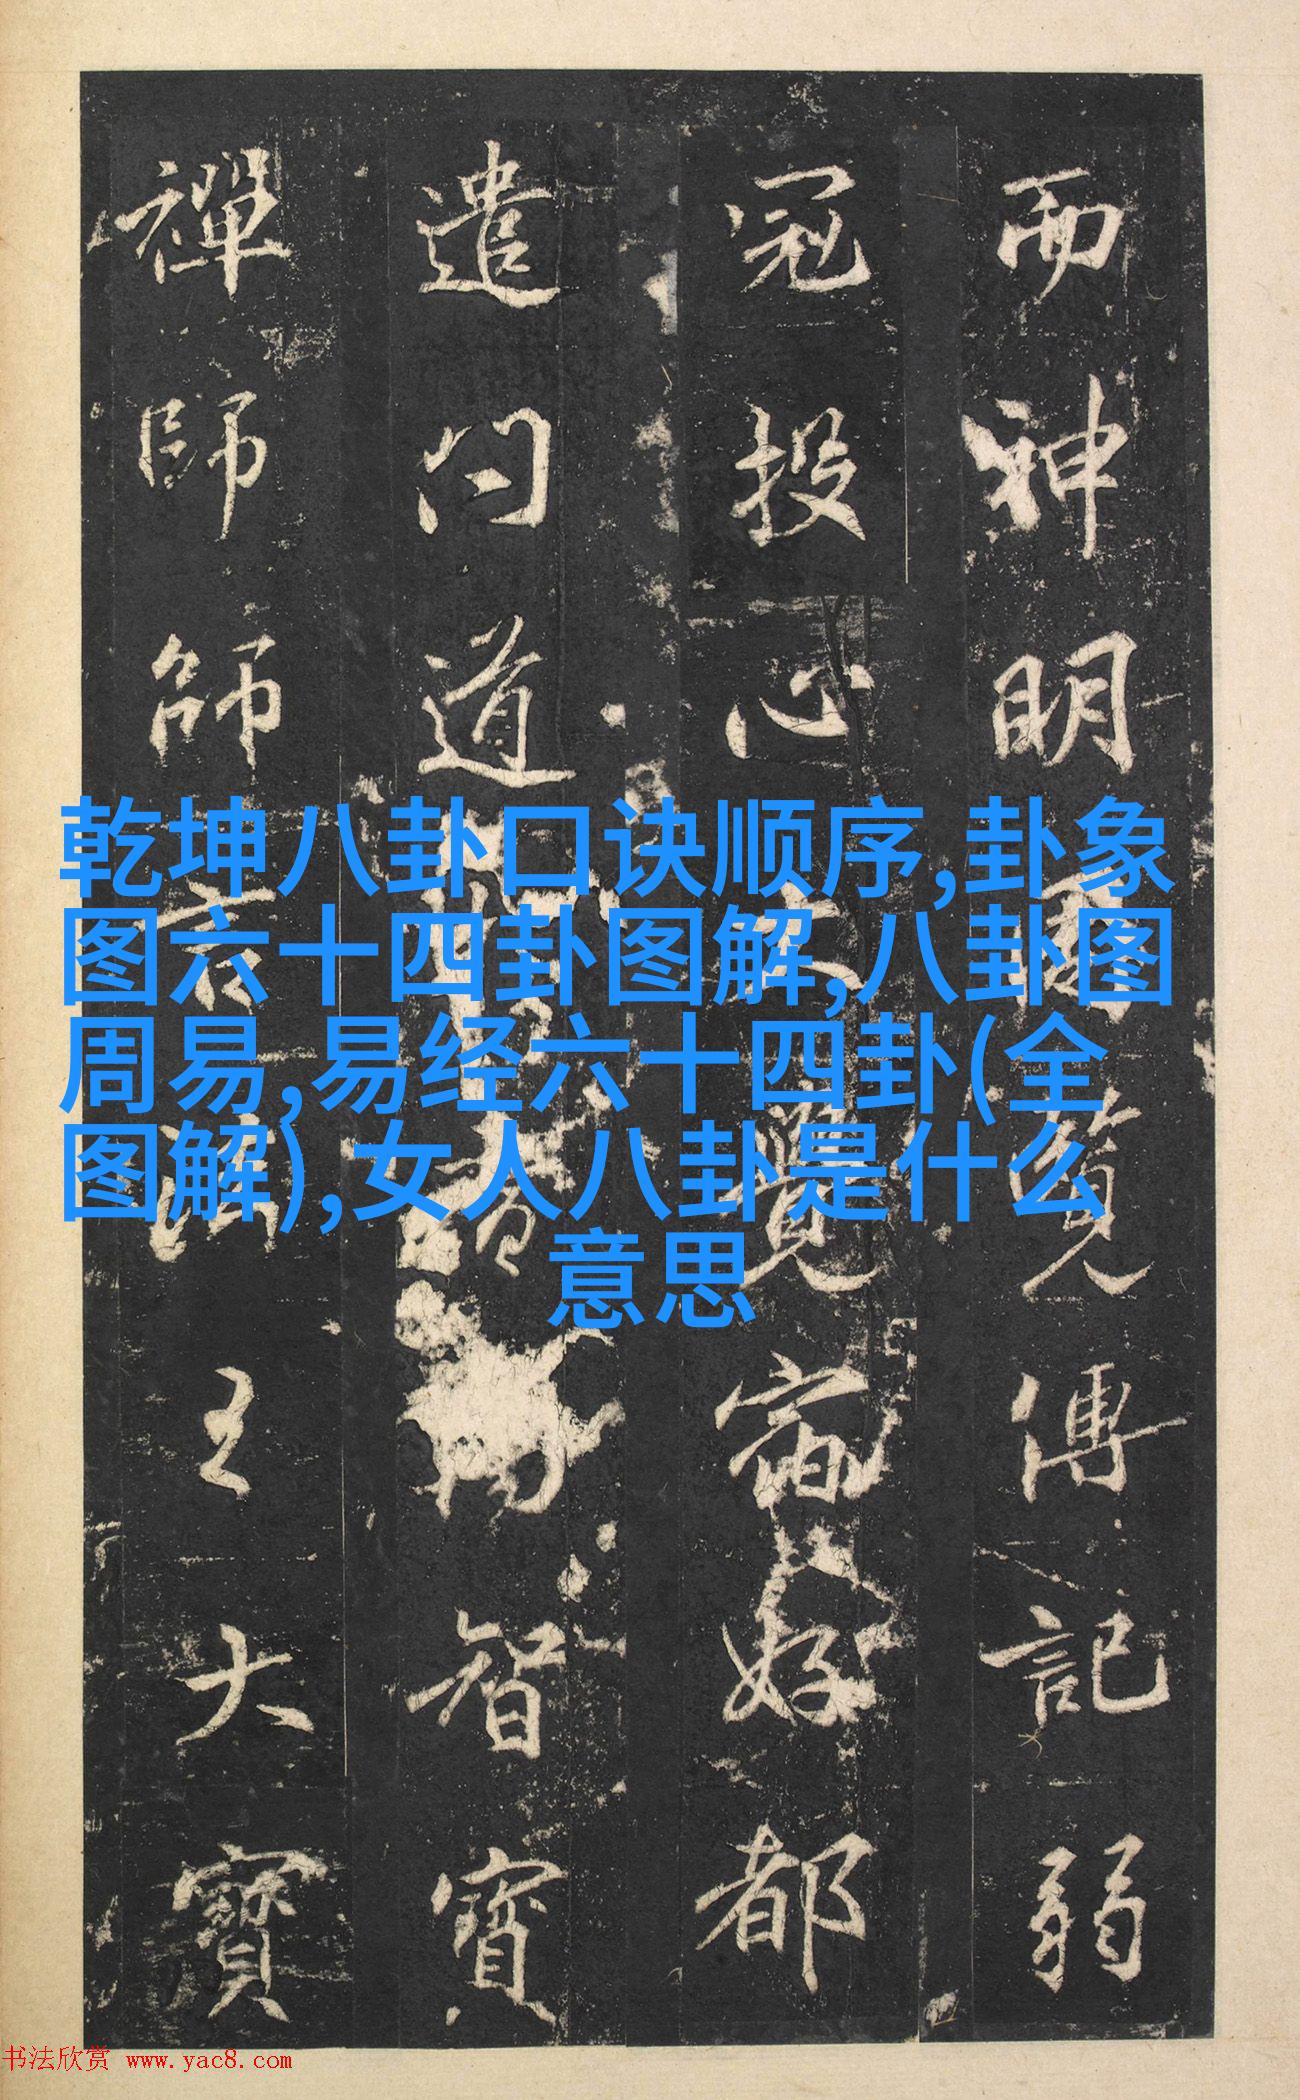 而神明
覽傳記弱
冠投心
覺
好都
遣问道
智寶
禪師師
言法主大
寶
乾坤八卦口诀顺序,卦象
图六十四卦图解,八卦图
周易,易经六十四卦(全
图解),女人八卦是什么
意思
书法欣赏 www.yac8.com